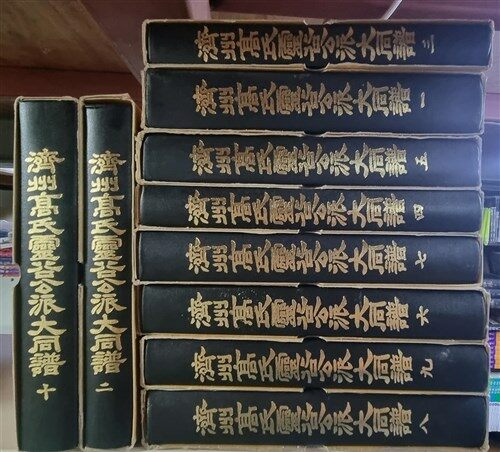 濟州高氏靈谷公派大同譜 十
濟州高氏靈谷公派大同譜 二
濟州高氏靈谷公派大同譜 三
濟州高氏靈谷公派大同譜 一
濟州高氏靈谷公派大同譜 五
濟州高氏靈谷公派大同譜 四
濟州高氏靈谷公派大同譜 七
濟州高氏靈谷公派大同譜 六
濟州高氏靈谷公派大同譜 九
濟州高氏靈谷公派大同譜 八